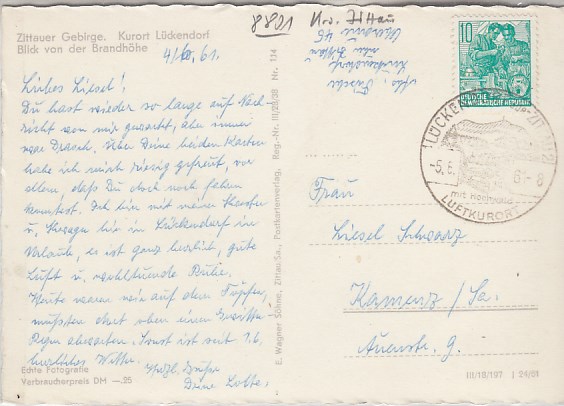 8801
Krs. Zittau
Zittauer Gebirge. Kurort Lückendorf
Blick von der Brandhöhe
4/6. 61.
Liebes Liesel!
Du hast wieder so lange auf Nach-
richt von mir gewartet, aber immer
war Drasch. Über Deine beiden Karten
habe ich mich riesig gefreut, vor
allem, daß Du doch noch fahren
konntest. Ich bin mit
in Lückendorf im
Urlaub, es ist ganz herrlich, gute
Luft u. wohltuende Ruhe.
Heute waren wir auf dem Töpfer,
mußten dort oben einen Gewitter-
Regen abwarten. Sonst ist seit
herrliches Wetter.
Herzl. Grüße
Deine Lotte.
Echte Fotografie
Verbraucherpreis DM —.25
E. Wagner Söhne, Zittau.Sa., Postkartenverlag, Reg.-Nr. III/28/38 Nr. 134
Lückendorf
über Zittau
10
DEUTSCHE DEMOKRATISCHE REPUBLIK
5
LÜCKENDORF
-5.6.
6-8
mit Hochwald
LUFTKURORT
Frau
Liesel Schwarz
Kamenz/Sa.
Auenstr. 9.
III/18/197 I 24/61